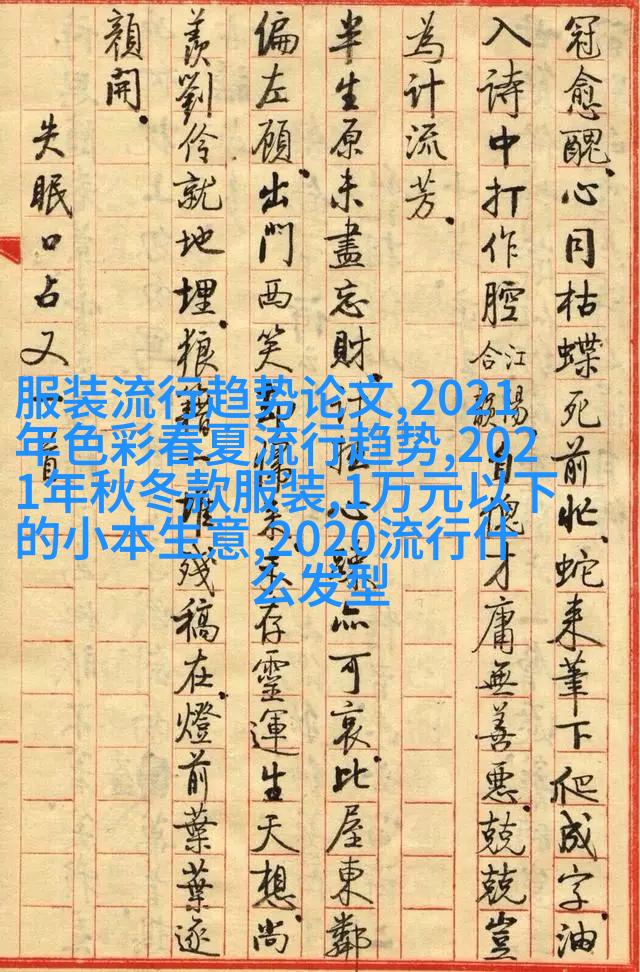 冠愈醜。心同枯蝶死前忙、蛇来筆下爬成字、油
入詩中打作腔江陽合韻。自愧才庸無善惡、兢兢豈
為計流芳。
半生原未盡忘財、計拙心亦可哀。比屋東鄰
偏左顧。出門西笑存靈運生天想、尚
羨劉伶就地埋。狼藉一堆殘稿在。燈前葉葉逐
顏開。
失眠口占又一首
服装流行趋势论文,2021
年色彩春夏流行趋势,202
1年秋冬款服装,1万元以下
的小本生意,2020流行什
么发型